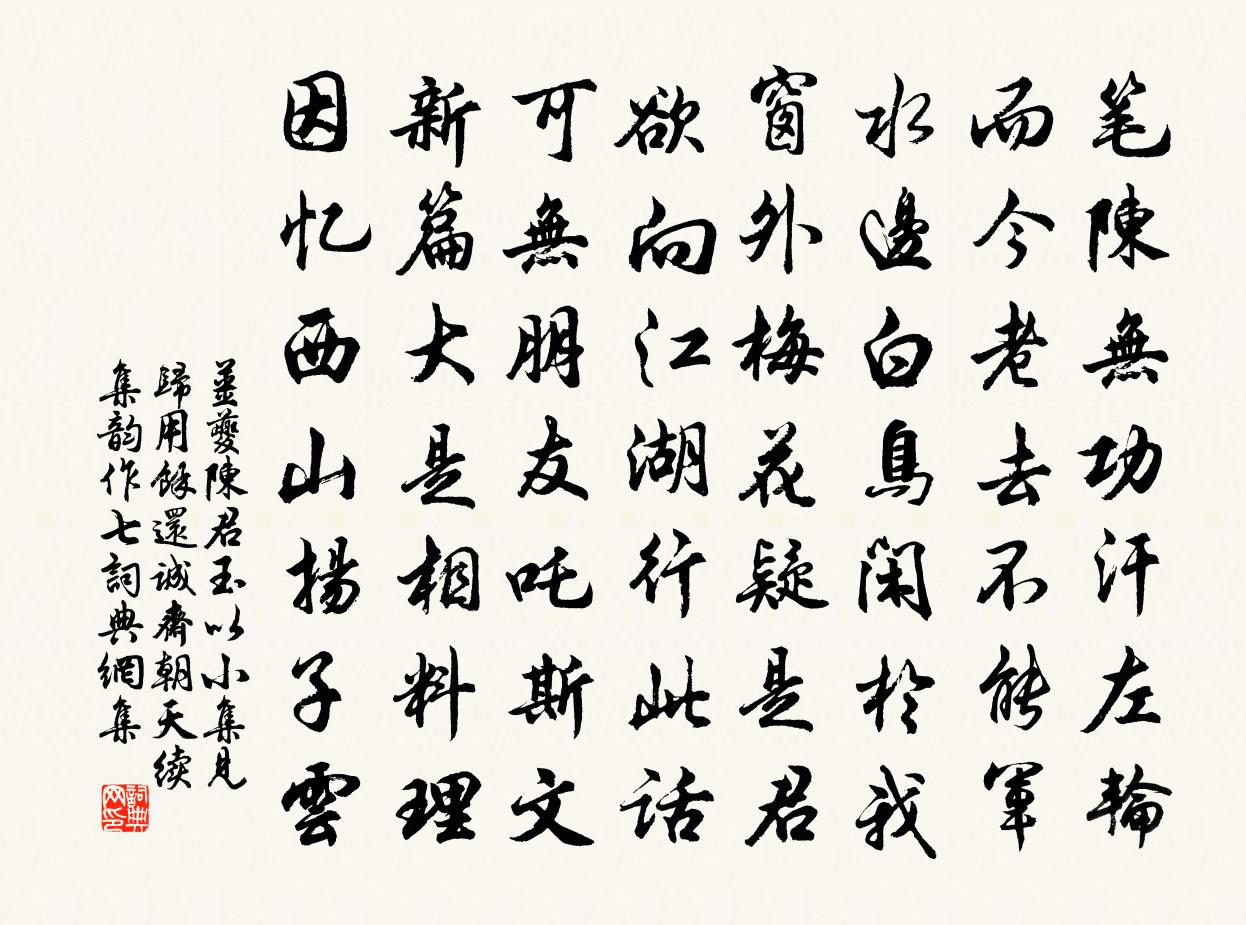 笔陳無功汗左輪
而今老去不能軍
水邊白鳥閑於我
窗外梅花疑是君
欲向江湖行此話
可無朋友吒斯文
新篇大是相料理
因忆西山揚子雲
並夔陳君玉以小集見
歸用餘還誠齋朝天续
集韵作七詞典網集
詞典网印